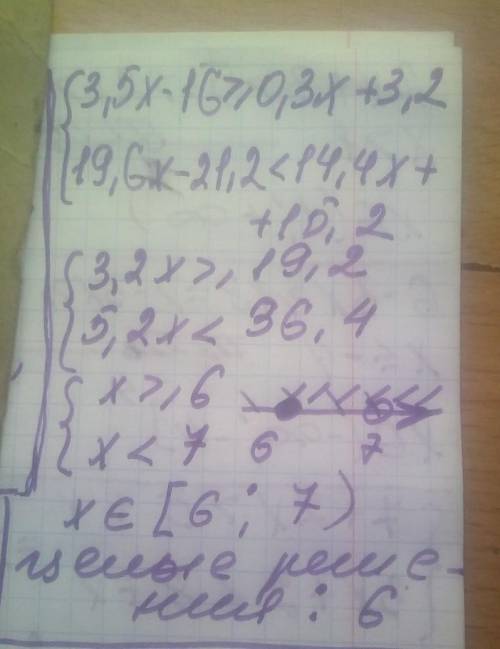 {3,5x-16⩾0,3x+3,2
{19,6x-21,2<14,4x+
+15,2
{3,2x⩾19,2
{5,2x<36,4
{x⩾6
{x<7 6 7
x∈[6; 7)
целые реше-
ния: 6